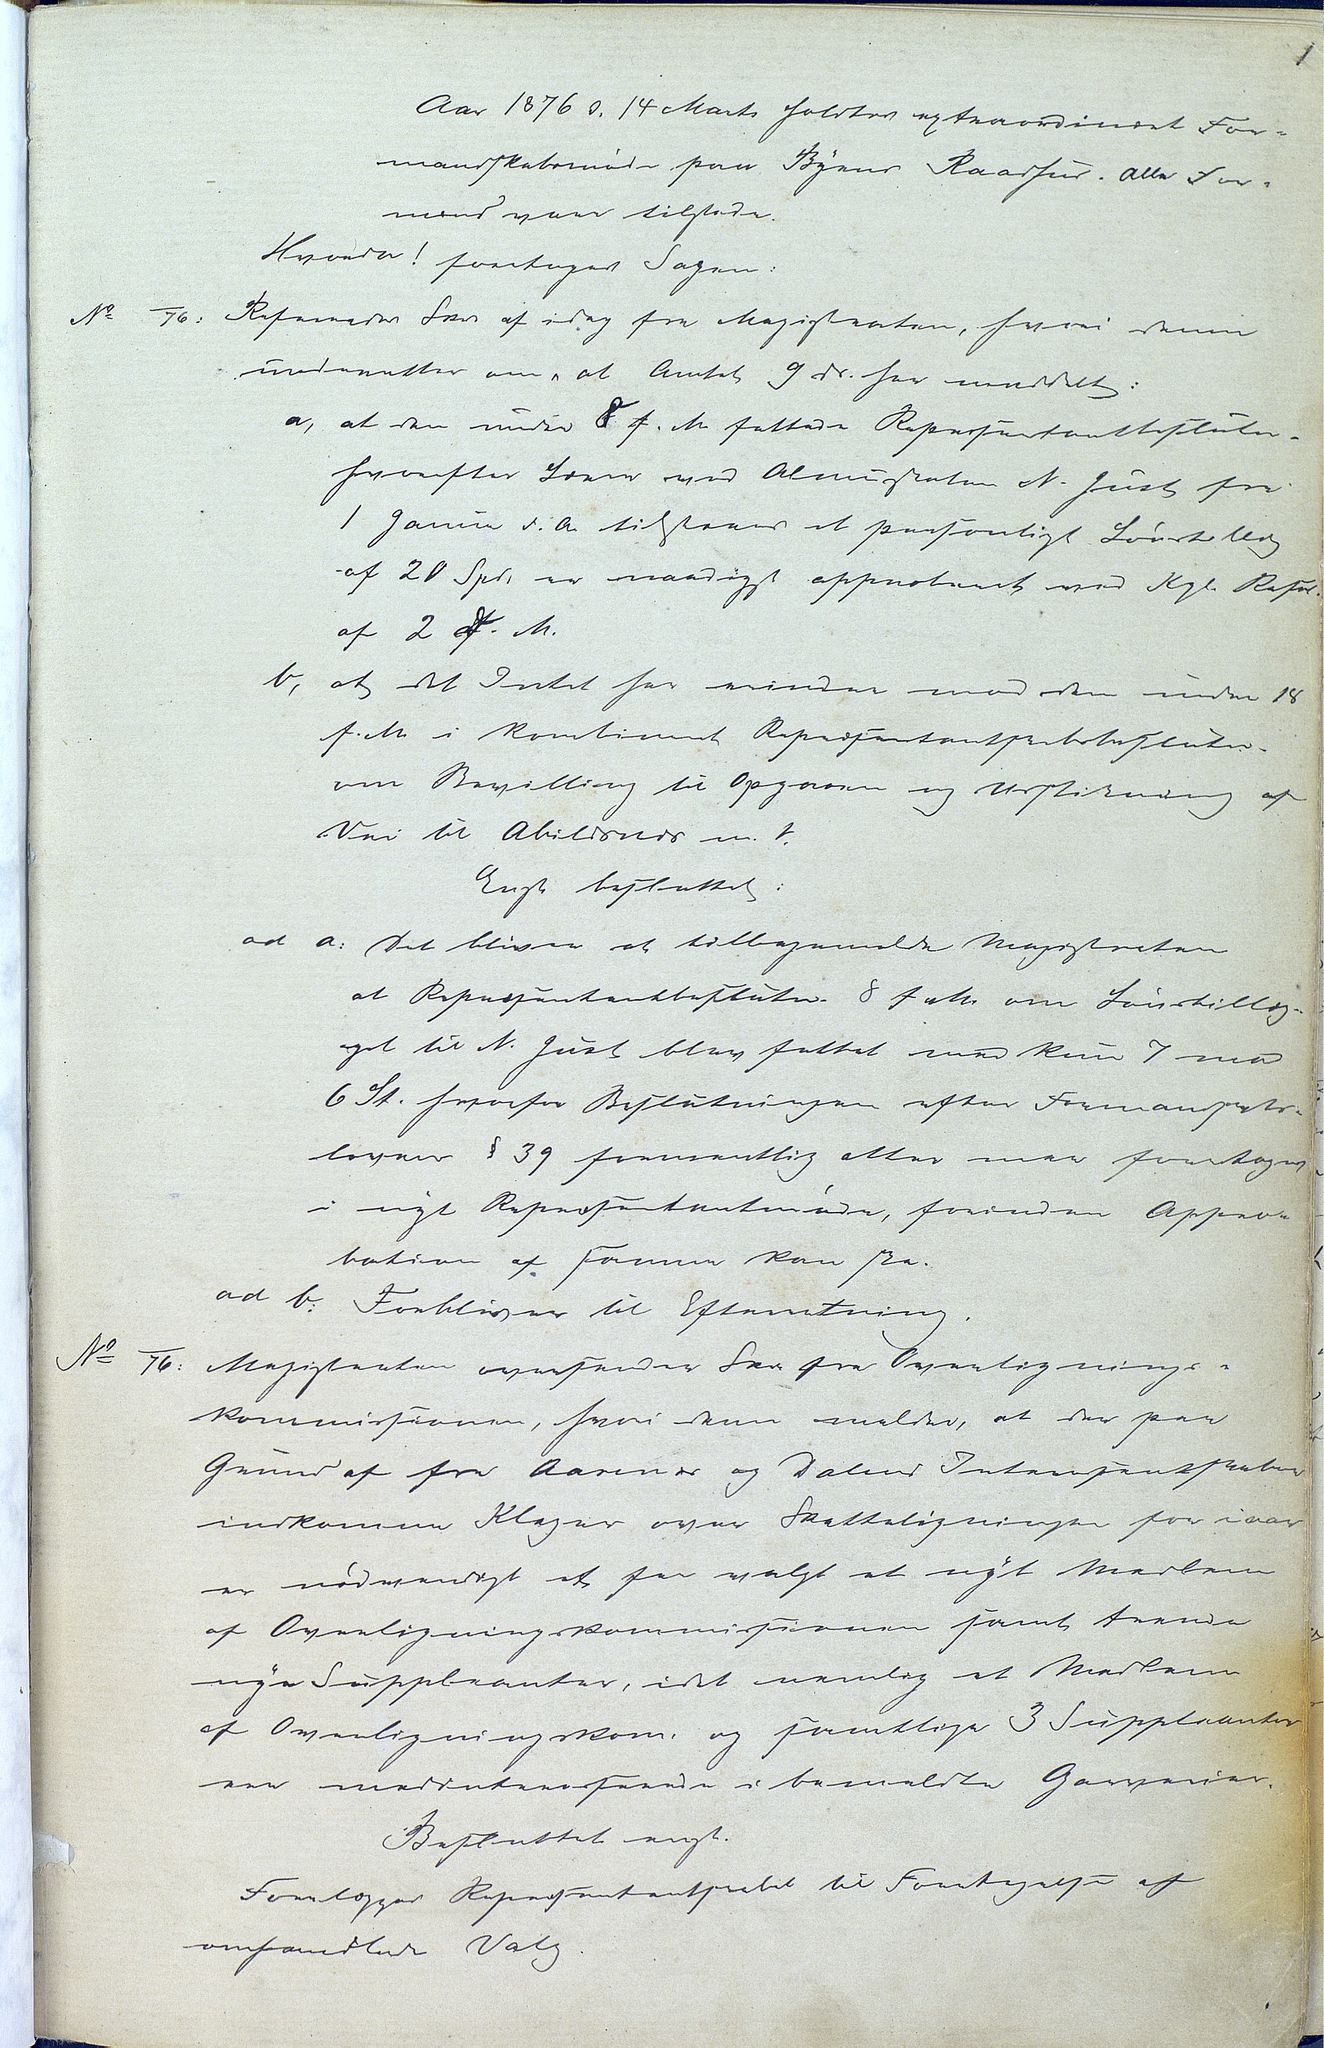 1
Aar 1876 d. 14 Marts holdtes extraordinært For-
mandskabsmøde paa Byens Raadhus. Alle For-
mænd vare tilstede.
Hvorda! foretoges Sagen:
No /76: Refereredes Skr. af idag fra Magistraten, hvori denne
underretter om, at Amtet 9 ds. har meddelt:
a, at den under 8 f. M. fattede Repræsentantbeslutn.
hvorefter Lærer ved Almueskolen N. Juul fra
1 Janua d. A. tilstaaes et personligt Lönstillæg
af 20 Spd. er naadigst approberet ved Kgl. Resol.
af 2 d. M.
b, at det Intet har erindre mod den under 18
f. M. i kombineret Repræsentantskabsbeslutn.
om Bevilling til Opgaaen og Udstikning af
Vei til Abildsnes m. V.
Enst. besluttet:
ad a: Det bliver at tilbagemelde Magistraten
at Repræsentantbeslutn. 8 f. M. om Lönstillæg-
get til N. Juul blev fattet med kun 7 mod
6 St. hvorfor Beslutningen efter Formandskabs-
lovens § 39 formentlig atter maa foretages
i nyt Repræsentantmöde, forinden Appro-
bation af samme kan ske.
ad b: Forbliver til Efterretning.
No /76: Magistraten oversender Skr. fra Overlignings-
kommissionen, hvori denne melder, at der paa
Grund af fra Aarenes og Dalens Interessentskaber
indkomne Klager over Skatteligningen for iaar
er nödvendigt at faa valgt et nyt Medlem
af Overligningskommissionen samt trende
nye Suppleanter, idet nemlig et Medlem
af Overligningskom. og samtlige 3 Suppleanter
ere medinteresserede i bemeldte Garverier.
Besluttet enst.
Forelægges Repræsentantskabet til Foretagelse af
omhandlede Valg.